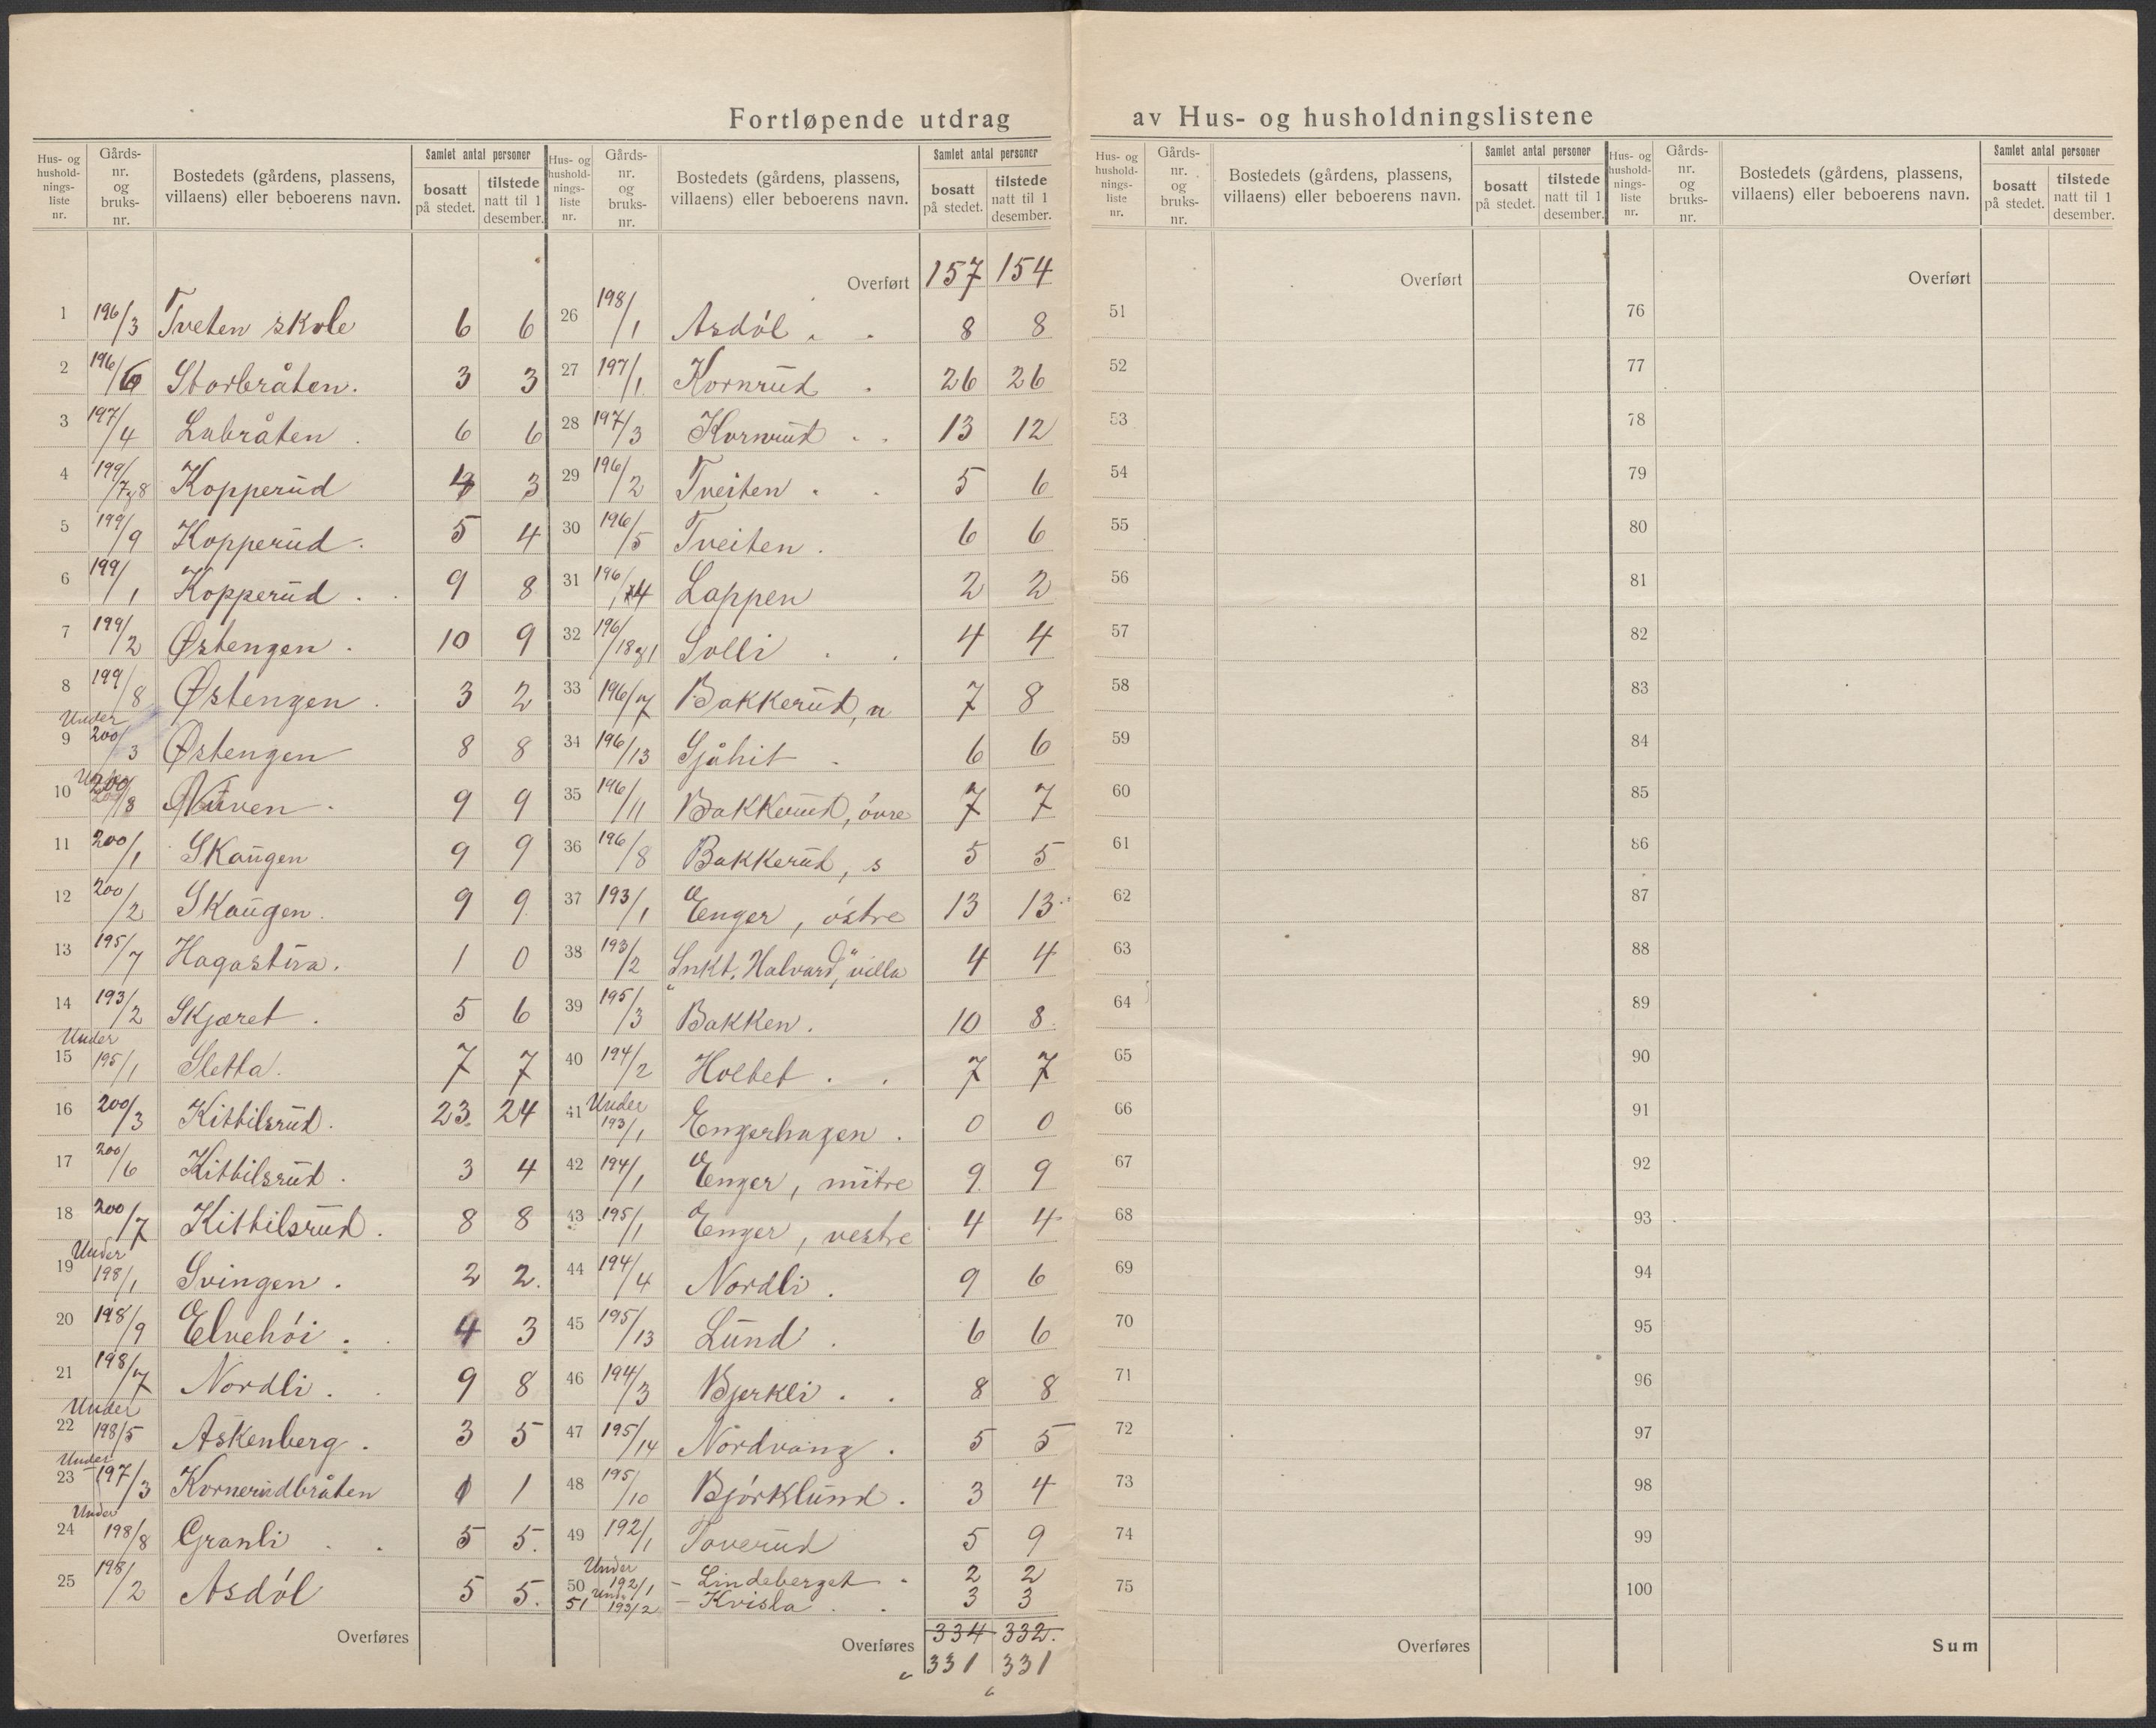 Fortløpende utdrag av Hus- og husholdningslistene
Hus- og hushold-nings-liste nr. Gårds-nr. og bruks-nr. Bostedets (gårdens, plassens, villaens) eller beboerens navn. Samlet antal personer bosatt på stedet. tilstede natt til 1 desember.
1 196/3 Tveten skole 6 6
2 196/6 Storbråten. 3 3
3 197/4 Labråten. 6 6
4 199/7og8 Kopperud 4 3
5 199/9 Kopperud. 5 4
6 199/1 Kopperud. 9 8
7 199/2 Østengen. 10 9
8 199/8 Østengen. 3 2
9 Under 200/3 Østengen 8 8
10 Under 200/8 Nuven. 9 9
11 200/1 Skaugen 9 9
12 200/2 Skaugen. 9 9
13 195/7 Hagastua. 1 0
14 193/2 Skjæret. 5 6
15 Under 195/1 Sletta. 7 7
16 200/3 Kittilsrud. 23. 24
17 200/6 Kittilsrud. 3 4
18 200/7 Kittilsrud. 8 8
19 Under 198/1 Svingen. 2 2.
20 198/9 Elvehöi. 4 3
21 198/7 Nordli. 9 8
22 Under 198/5 Askenberg. 3 5
23 Under 197/3 Kornerudbråten 1 1
24 Under 198/8 Granli 5 5.
25 198/2 Asdöl 5 5.
Overføres
Hus- og hushold-nings-liste nr. Gårds-nr. og bruks-nr. Bostedets (gårdens, plassens, villaens) eller beboerens navn. Samlet antal personer bosatt på stedet. tilstede natt til 1 desember.
Overført 157 154
26 198/1 Asdöl 8 8
27 197/1 Kornrud 26 26
28 197/3 Kornrud 13 12
29 196/2 Tveiten 5 6
30 196/5 Tveiten. 6 6
31 196/4 Lappen 2 2
32 196/18og1 Solli 4 4
33 196/7 Bakkerud, n 7 8
34 196/13 Sjåhit 6 6
35 196/11 Bakkerud, övre 7 7
36 196/8 Bakkerud, s 5 5
37 193/1 Enger, östre 13 13
38 193/2 „Snkt. Halvard," villa 4 4
39 195/3 Bakken. 10 8.
40 194/2 Holtet. 7 7
41 Under 193/1 Engerhagen. 0 0
42 194/1 Enger, mitre 9. 9
43 195/1 Enger, vestre 4 4
44 194/4 Nordli. 9 6
45 195/13 Lund. 6 6
46 194/3 Bjerkli. 8 8
47 195/14 Nordvang. 5 5
48 195/10 Björklund. 3 4
49 192/1 Taverud 5 9
50 Under 192/1 - Lindeberget 2 2
51 Under 193/2 - Kvisla 3 3
334 332.
Overføres
331 331
Hus- og hushold-nings-liste nr. Gårds-nr. og bruks-nr. Bostedets (gårdens, plassens, villaens) eller beboerens navn. Samlet antal personer bosatt på stedet. tilstede natt til 1 desember.
Overført
51
52
53
54
55
56
57
58
59
60
61
62
63
64
65
66
67
68
69
70
71
72
73
74
75
Overføres
Hus- og hushold-nings-liste nr. Gårds-nr. og bruks-nr. Bostedets (gårdens, plassens, villaens) eller beboerens navn. Samlet antal personer bosatt på stedet. tilstede natt til 1 desember.
Overført
76
77
78
79
80
81
82
83
84
85
86
87
88
89
90
91
92
93
94
95
96
97
98
99
100
Sum